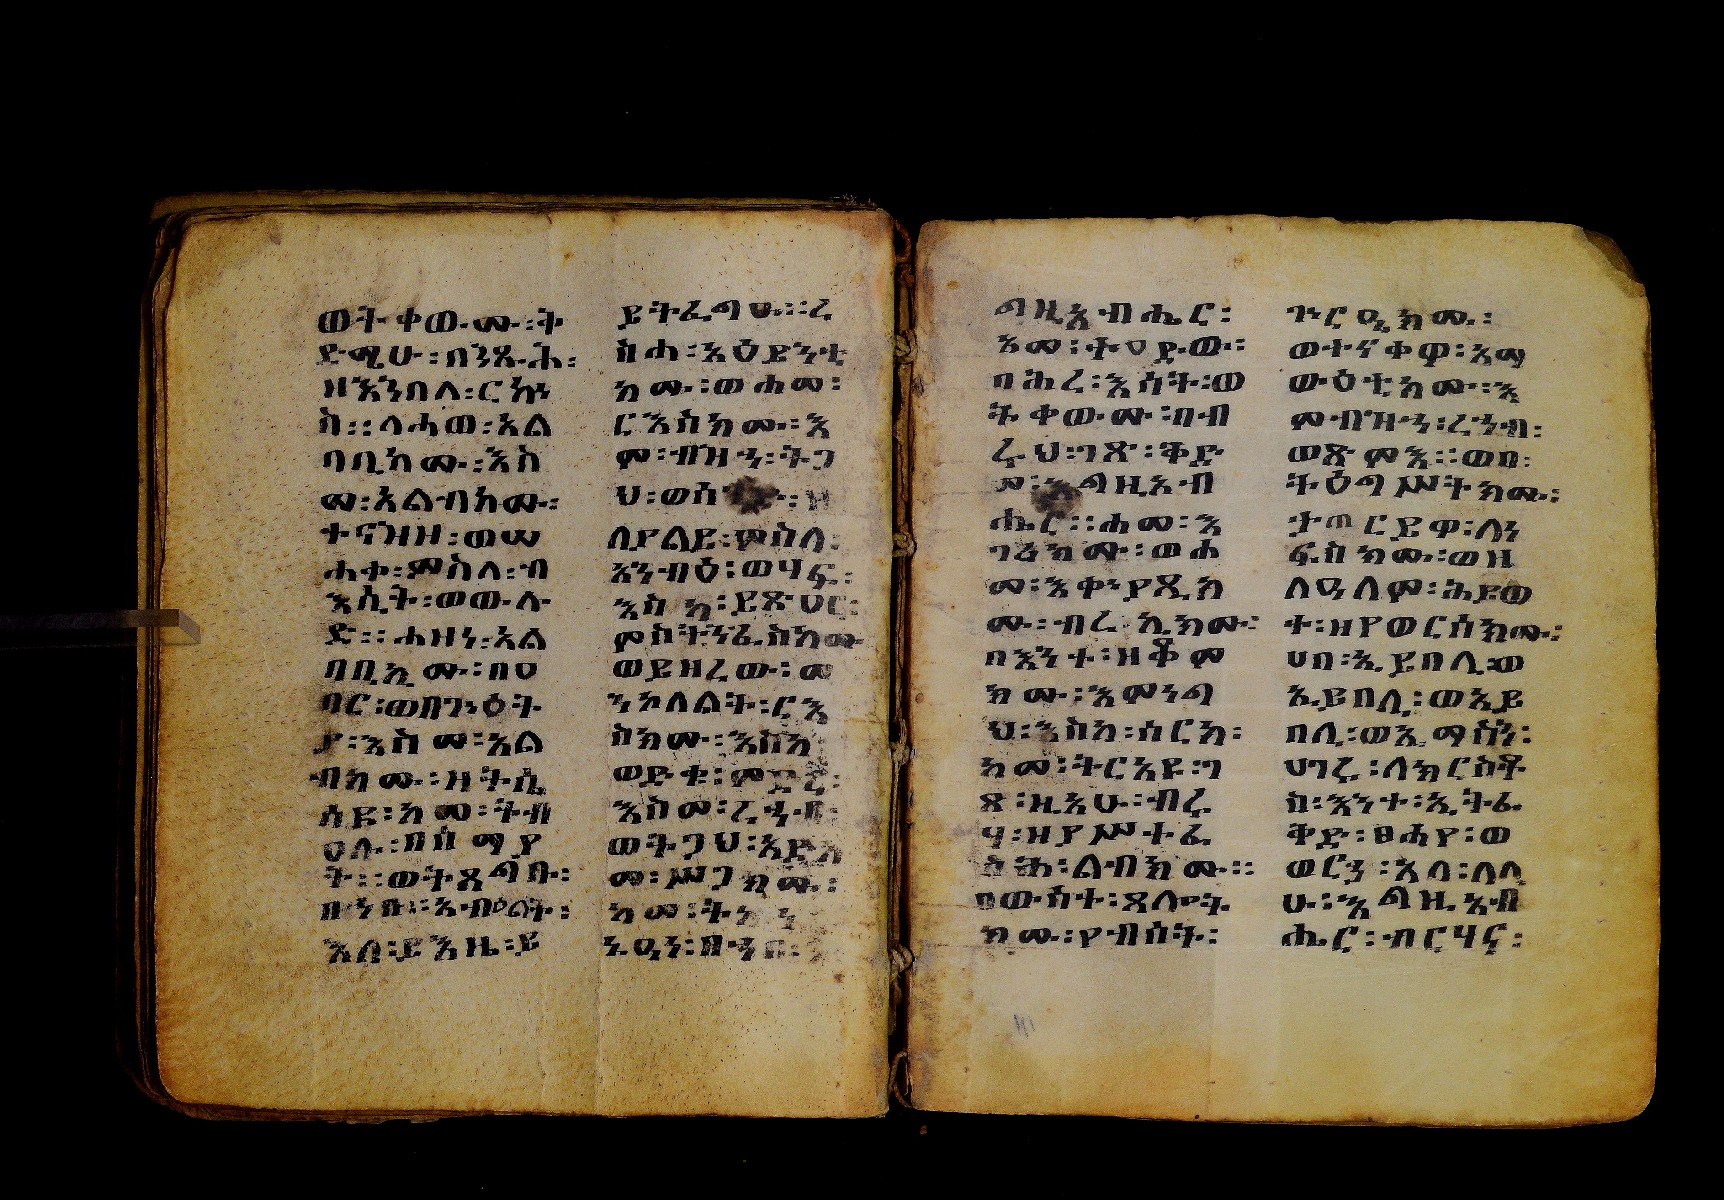 ወትቀውሙ፡ት
ድሚሁ፡በንጹሕ፡
ዘእንበለ፡ርኩ
ስ፡፡ላሓወ፡አል
ባቢክሙ፡እስ
መ፡አልብክሙ፡
ተናዝዞ፡ወሠ
ሐቀ፡ምስለ፡ብ
እሲት፡ወውሉ
ድ፡፡ሐዘነ፡አል
ባቢክሙ፡በዐ
ባር፡ወበጉዕት
ያ፡እስመ፡አል
ብክሙ፡ዘትሴ
ሰዩ፡አመ፡ትብ
ዐሉ፡በሰማያ
ት፡፡ወትጸግቡ፡
አብዕልት፡
እለ፡ይእዜ፡ይ
ይትፌግዑ፡፡ረ
ስሐ፡አዕይንቲ
ክሙ፡ወሐመ፡
ርእስክሙ፡እ
ምብዝኅ፡ትጋ
ህ፡ዘ
ለያልይ፡ምስለ፡
አንብዕ፡ወሃፍ፡
እስከ፡ይጽዐር፡
ምስትንፋስክሙ
ወይዘረው፡መ
ንኮለልት፡ርእ
ስክሙ፡እስከ
ወድቀ፡ምድረ፡
እስመ፡ረኀብ፡
ወትጋህ፡አድከ
መ፡ሥጋክሙ፡
አመ፡
ግዚአብሔር፡
አመ፡ትዐድው፡
ባሕረ፡እሳት፡ወ
ትቀውሙ፡በብ
ሩህ፡ገጽ፡ቅድ
መ፡እግዚአብ
ሔር፡፡ሐመ፡እ
ገሪክሙ፡ወሐ
መ፡እቀያጺክ
ሙ፡ብረኪክሙ፡
በእንተ፡ዘቆም
ክሙ፡እምነግ
ህ፡እስከ፡ሰርክ፡
አመ፡ትርአዩ፡ገ
ጸ፡ዚአሁ፡ብሩ
ሃ፡ዘያሥተፌ
ሥሕ፡ልብክሙ፡፡
በውስተ፡ጸሎት
ክሙ፡የብሰት፡
ጉርዔክሙ፡
ወተናቀዋ፡አማ
ውዕቲክሙ፡እ
ምብዝኅ፡ረኀብ፡
ወጽምእ፡፡ወበ፡
ትዕግሥትክሙ፡
ታጠርይዋ፡ለነ
ፍስክሙ፡ወዘ
ለዓለም፡ሕይወ
ት፡ዘየወርሰክሙ፡
ሀበ፡ኢይበሊ፡ወ
ኢይበሊ፡ወኢይ
በሊ፡ወኢማስነ፡
ሀገሩ፡ለክርስቶ
ስ፡እንተ፡ኢትፌ
ቅድ፡ፀሐየ፡ወ
ወርኀ፡አላ፡ለሊ
ሁ፡እግዚአብ
ሔር፡ብርሃና፡